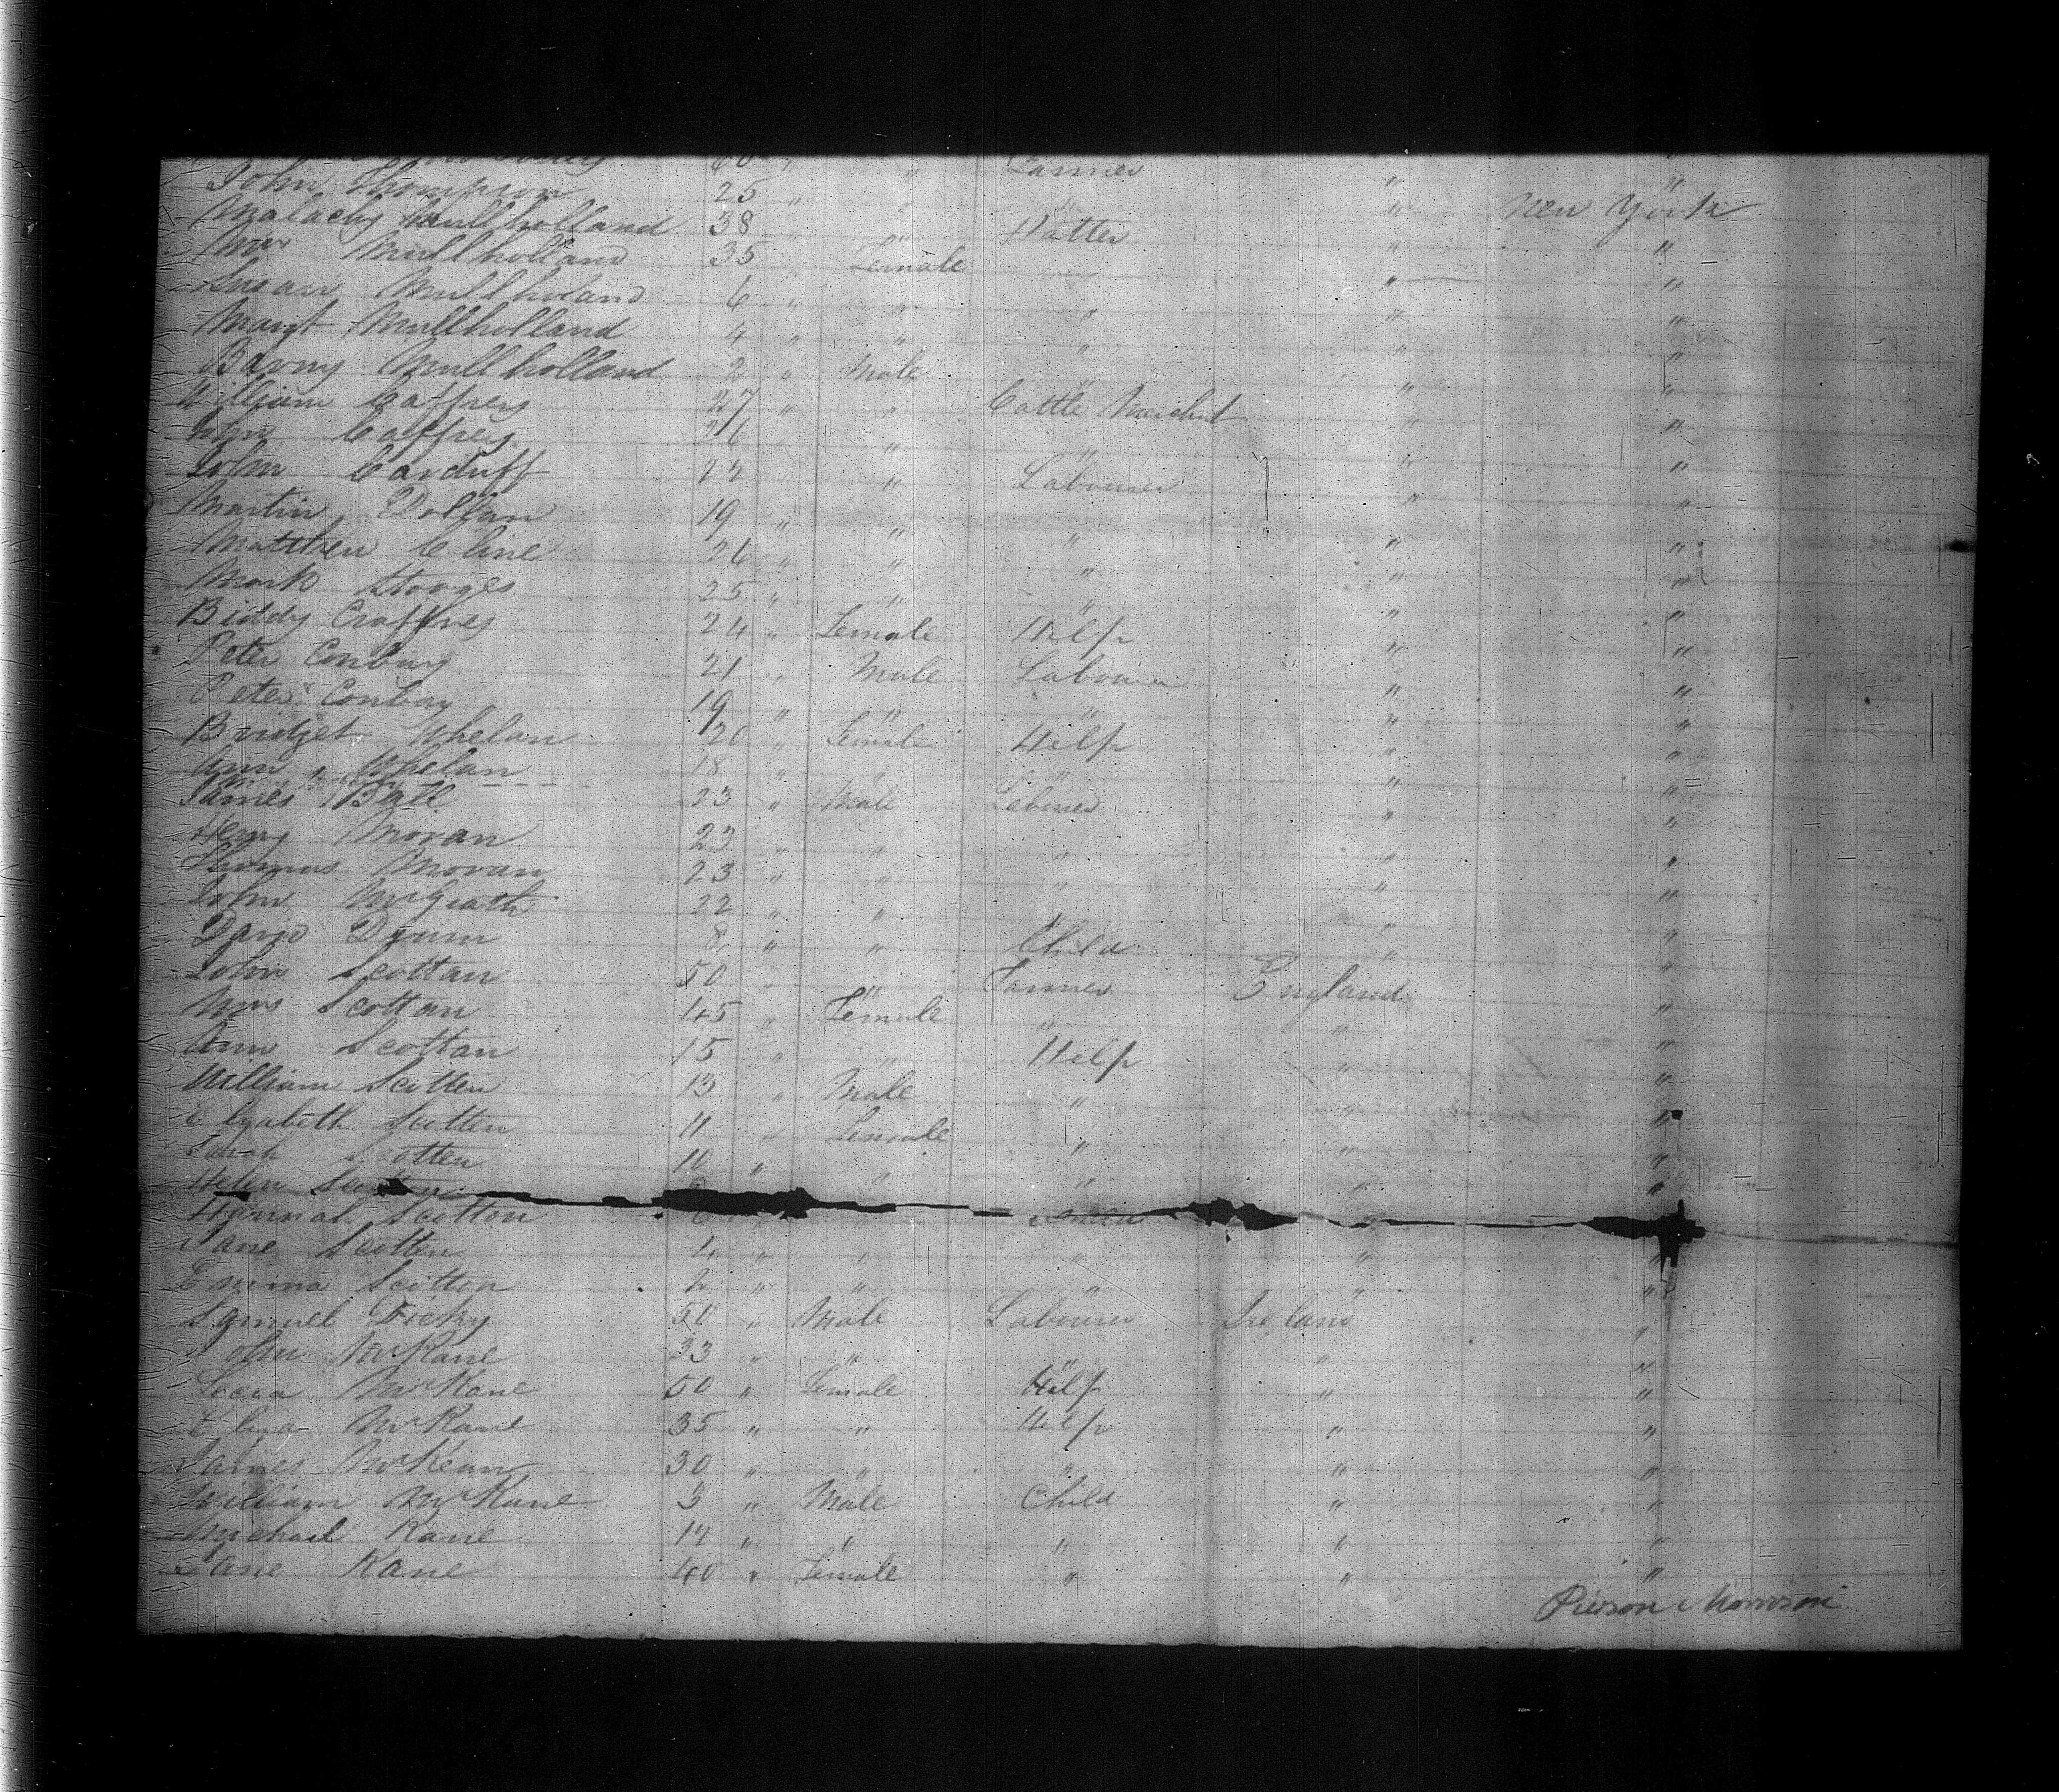 60 " " Farmer " "
John Thompson 25 " " " " New York
Malachy Mullholland 38 " " Hatter " "
Mrs Mullholland 35 " Female " "
Susan Mullholand 6 " " " " "
Margt Mullholland 4 " " " " "
Barny Mullholland 2 " Male " " "
William Caffrey 27 " " Cattle Merchnt " "
John Caffrey " " " "
John Carduff 22 " " Labourer " "
Martin Dollan 19 " " " " "
Matthew Cline 26 " " " " "
Mark 25 " " " " "
Biddy Caffrey 24 " Female Help " "
Peter Conboy 21 " Male Labourer " "
Peter Conboy 19 " " " " "
Bridget Whelan 20 " Female Help " "
Ann Whelan 18 " " " " "
James Ball 23 " Male Labourer " "
Henry Moran 23 " " " " "
Thomas Moran 23 " " " " "
John McGrath 22 " " " " "
David 8 " " Child " "
John Scottan 50 " " Farmer England "
Mrs Scottan 45 " Female " " "
Ann Scottan 15 " " Help " "
William Scotten 13 " Male " " "
Elizabeth Scotten 11 " Female " " "
Sarah Scotten 10 " " " " "
Helen " " "
Hannah Scotton 6 " " "
Jane Scotten 4 " " " " "
Emma Scotton 2 " " " " "
Samuel Dicky 50 " Male Labourer Ireland "
John McKane 33 " " " " "
McKane 50 " Female Help " "
Eliza McKane 35 " " Help " "
James McKean 30 " " " " "
William McKane 3 " Male Child " "
Michael Kane 12 " " " " "
Jane Kane 40 " Female " " "
Pierson Morrison